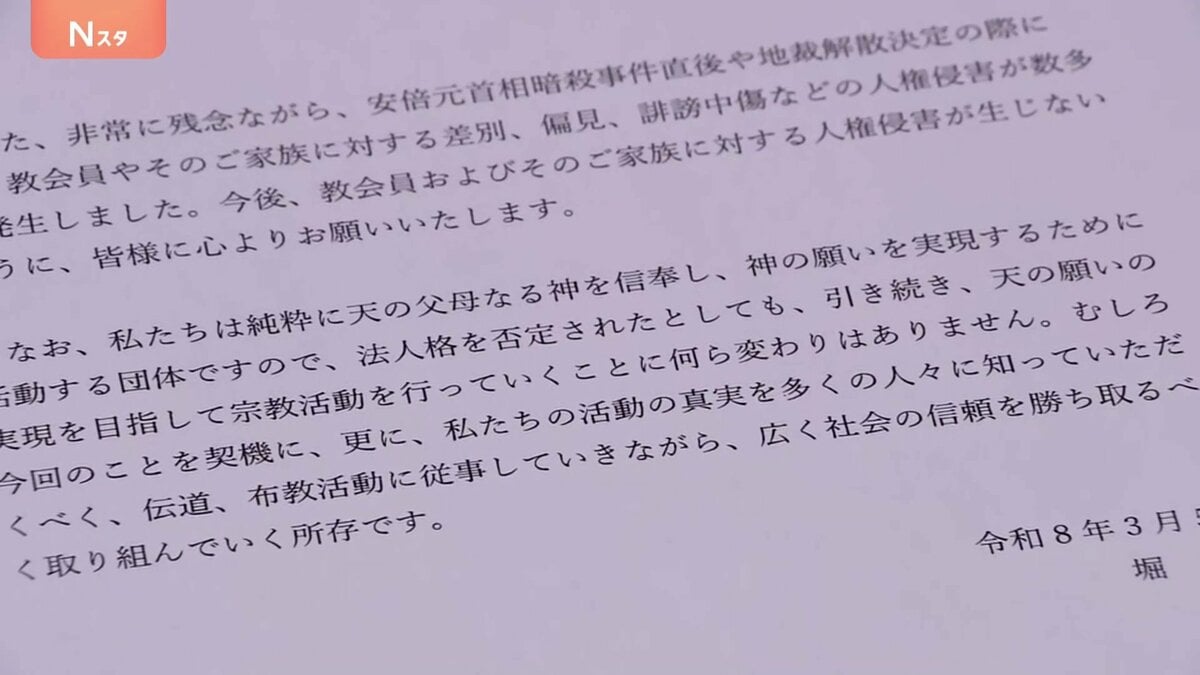 Nスタ
た、非常に残念ながら、安倍元首相暗殺事件直後や地裁解散決定の際に
教会員やそのご家族に対する差別、偏見、誹謗中傷などの人権侵害が数多
発生しました。今後、教会員およびそのご家族に対する人権侵害が生じない
うに、皆様に心よりお願いいたします。
なお、私たちは純粋に天の父母なる神を信奉し、神の願いを実現するために
活動する団体ですので、法人格を否定されたとしても、引き続き、天の願いの
実現を目指して宗教活動を行っていくことに何ら変わりはありません。むしろ
今回のことを契機に、更に、私たちの活動の真実を多くの人々に知っていただ
くべく、伝道、布教活動に従事していきながら、広く社会の信頼を勝ち取るべ
く取り組んでいく所存です。
令和8年3月
堀